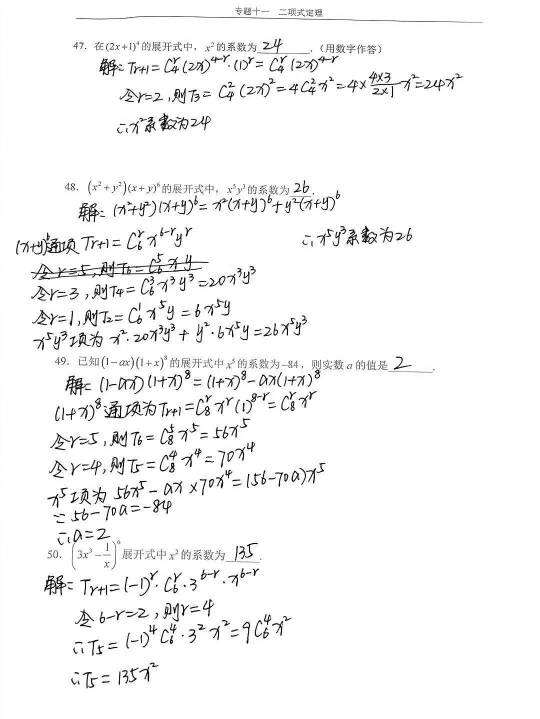 专题十一 二项式定理
47. 在(2x+1)⁴的展开式中，x²的系数为 24 .（用数字作答）
解: Tr+1=C₄ʳ(2x)⁴⁻ʳ·(1)ʳ=C₄ʳ(2x)⁴⁻ʳ
令r=2,则T₃=C₄²(2x)²=4C₄²x²=4×(4×3)/(2×1)x²=24x²
∴x²系数为24
48. (x²+y²)(x+y)⁶的展开式中，x⁵y³的系数为 26 .
解: (x²+y²)(x+y)⁶=x²(x+y)⁶+y²(x+y)⁶
(x+y)⁶通项 Tr+1=C₆ʳx⁶⁻ʳyʳ ∴x⁵y³系数为26
令r=5,则T₆=C₆⁵xy
令r=3,则T₄=C₆³x³y³=20x³y³
令r=1,则T₂=C₆¹x⁵y=6x⁵y
x⁵y³项为 x²·20x³y³+y²·6x⁵y=26x⁵y³
49. 已知(1-ax)(1+x)⁸的展开式中x⁵的系数为-84，则实数a的值是 2 .
解: (1-ax)(1+x)⁸=(1+x)⁸-ax(1+x)⁸
(1+x)⁸通项为Tr+1=C₈ʳxʳ(1)⁸⁻ʳ=C₈ʳxʳ
令r=5,则T₆=C₈⁵x⁵=56x⁵
令r=4,则T₅=C₈⁴x⁴=70x⁴
x⁵项为 56x⁵-ax×70x⁴=(56-70a)x⁵
∵56-70a=-84
∴a=2
50. (3x³-1/x)⁶展开式中x²的系数为 135 .
解: Tr+1=(-1)ʳ·C₆ʳ·3⁶⁻ʳ·x⁶⁻ʳ
令6-r=2,则r=4
∴T₅=(-1)⁴C₆⁴·3²x²=9C₆⁴x²
∴T₅=135x²